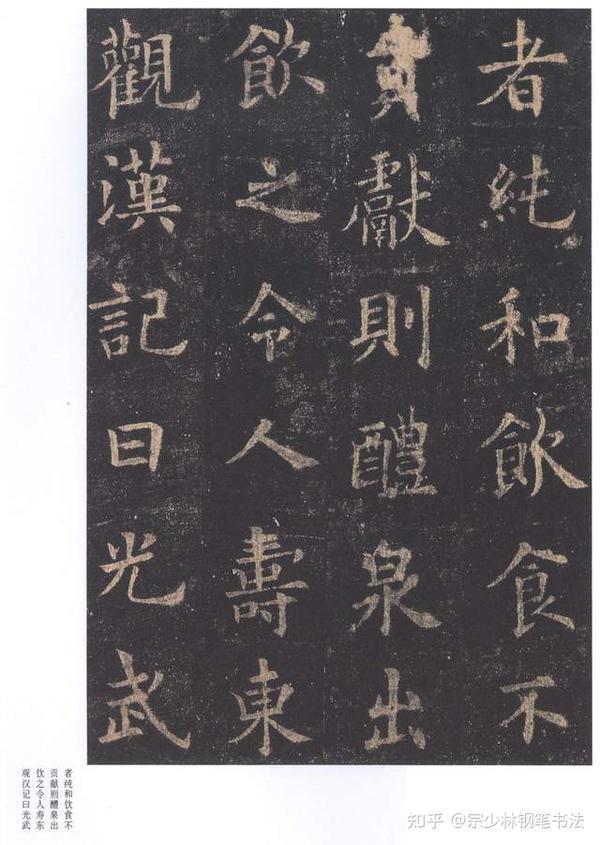 者純和飲食不
貢獻則醴泉出
飲之令人壽東
觀漢記曰光武
者纯和饮食不
贡献则醴泉出
饮之令人寿东
观汉记曰光武
知乎 @宗少林钢笔书法